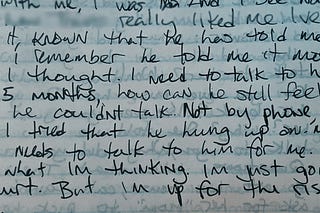 with me, I was And I see now
really liked me Ive
it, known that he has told me
i remember he told me it mo
I thought. I need to talk to h
5 months, how can he still feel
he couldnt talk. Not by phone,
I tried that he hung up on m
needs to talk to him for me.
what Im thinking. im just go
urt. But im up for the ris